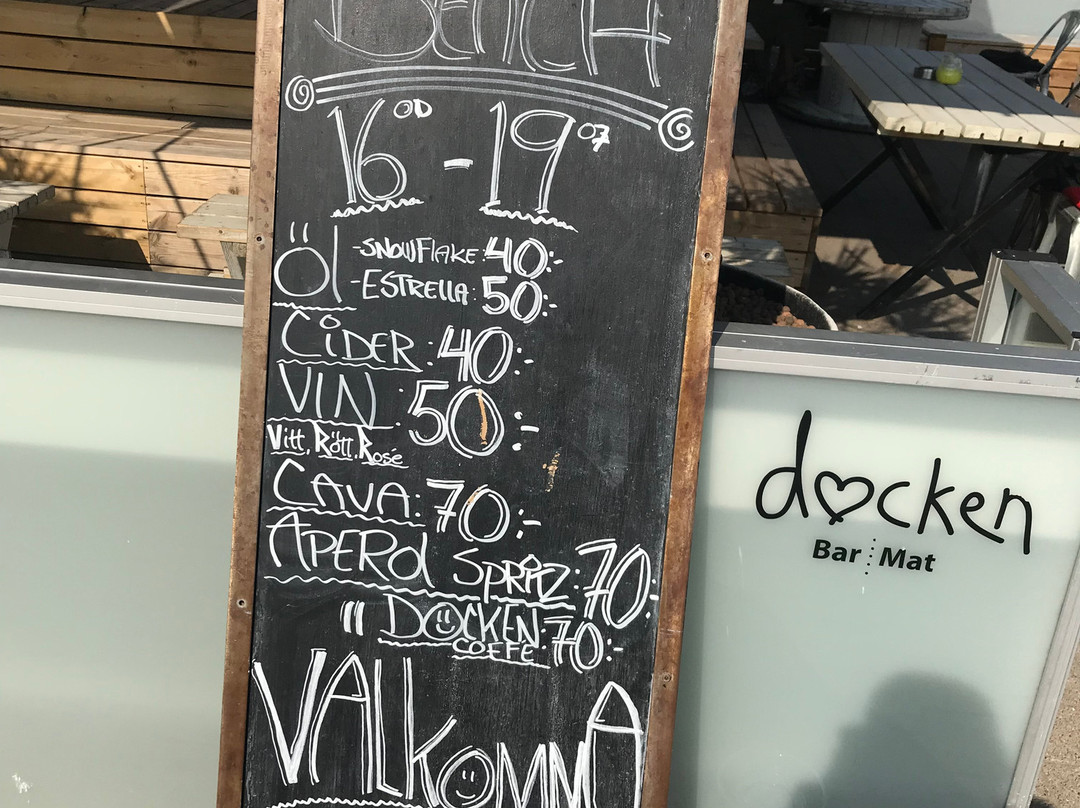 BEACH
16⁰⁰ - 19⁰⁷
Öl -SNOWFlAKE: 40:-
-ESTRELLA: 50:-
CiDER: 40:-
VIN: 50:-
Vitt, Rött, Rosé
CAVA: 70:-
APEROl SPRitZ: 70:-
" DOCKEN COFFE: 70:-
VÄLKOMMNA
docken
Bar Mat